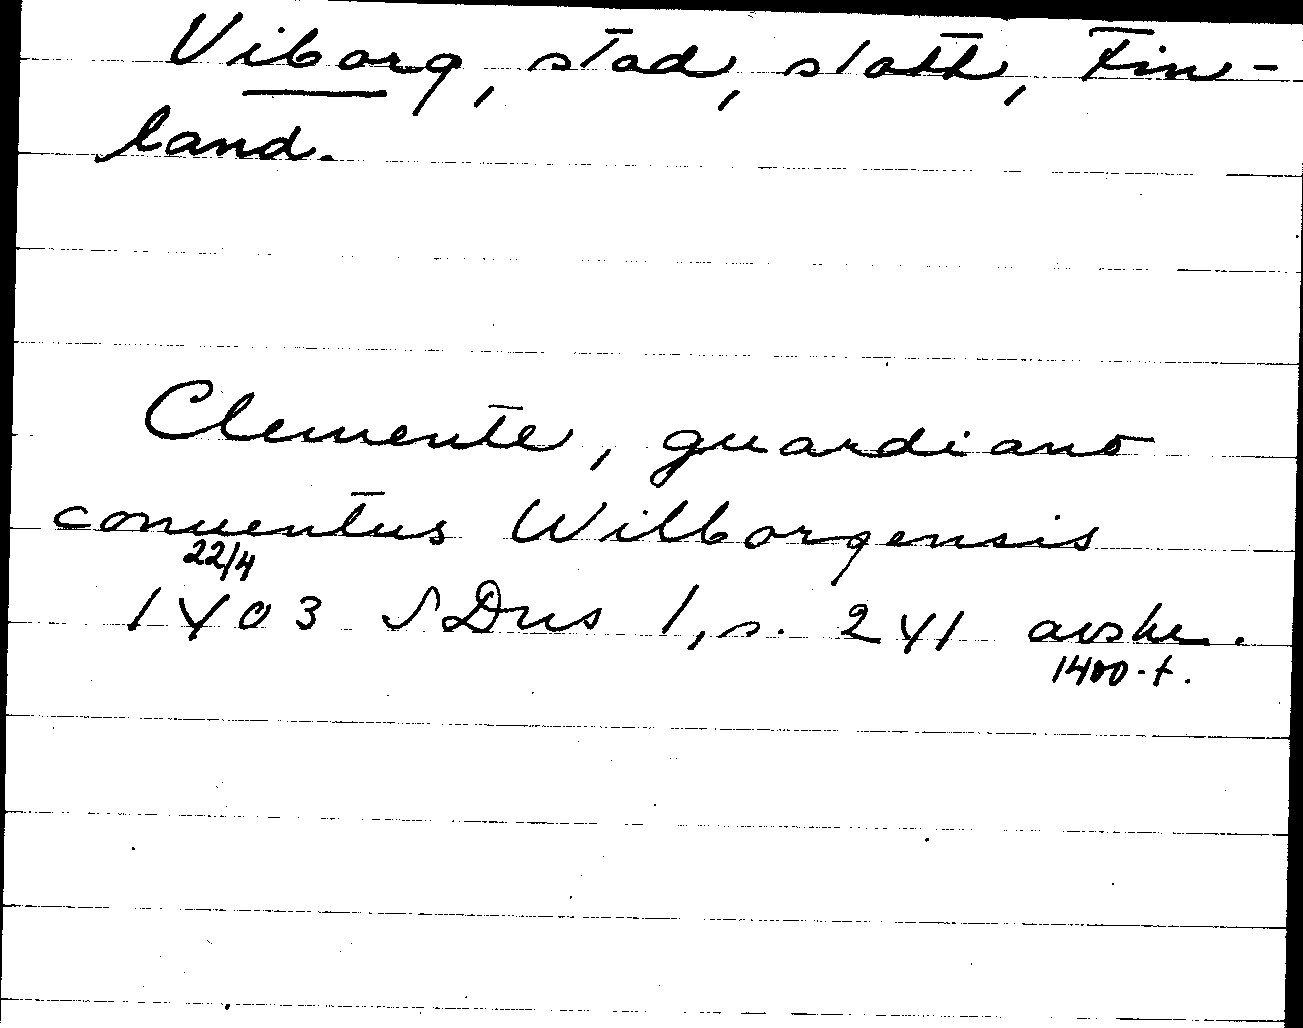 Viborg, stad, slott, Fin-
land.
Clemente, guardiano
conuentus Wilborgensis
22/4
1403 SDns 1, s. 241 avskr.
1400-t.